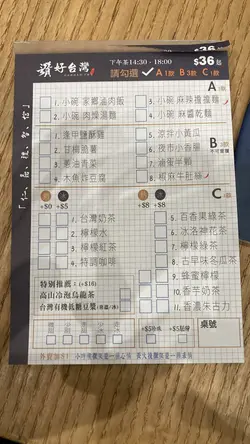 好台灣
下午茶14:30 - 18:00
$36起
請勾選 ✓ A1款 B3款 C1款
A
1. 小碗 家鄉滷肉飯
2. 小碗 肉燥湯麵
3. 小碗 麻辣擔擔麵
4. 小碗 麻醬乾麵
B
1. 逢甲鹽酥雞
2. 甘梅脆薯
3. 薑油青菜
4. 木魚拌豆腐
5. 涼拌小黃瓜
6. 夜市小香腸
7. 滷蛋半顆
8. 椒麻牛肚絲
C
+$0 +$5
+$8 +$8
1. 台灣奶茶
2. 檸檬水
3. 檸檬紅茶
4. 特調咖啡
特別推薦：(+$16)
高山冷泡烏龍茶
台灣有機低糖豆漿
5. 百香果綠茶
6. 冰洛神花茶
7. 檸檬綠茶
8. 古早味冬瓜茶
9. 蜂蜜檸檬
10. 香芋奶茶
11. 香濃朱古力
+$5珍珠
桌號